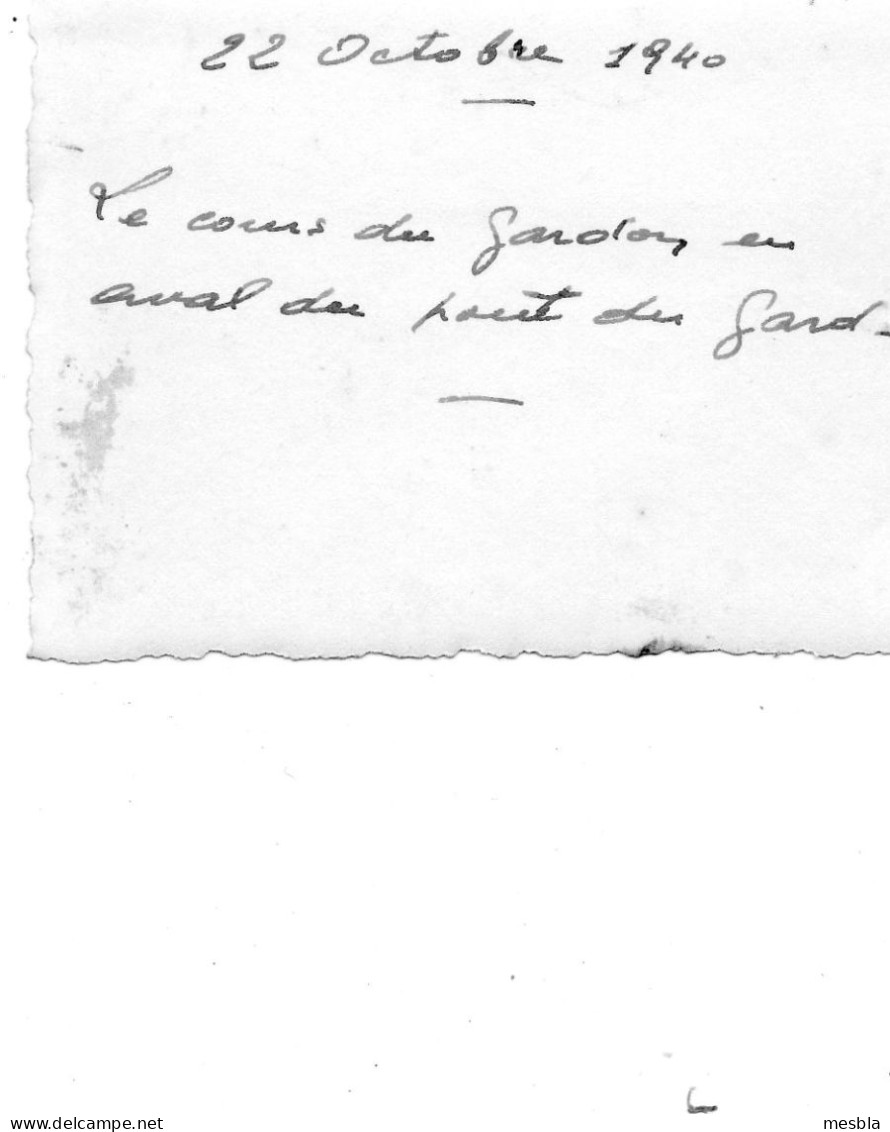 22 Octobre 1940
Le cours du Gardon, en
aval du pont du Gard -
delcampe.net
mesbla